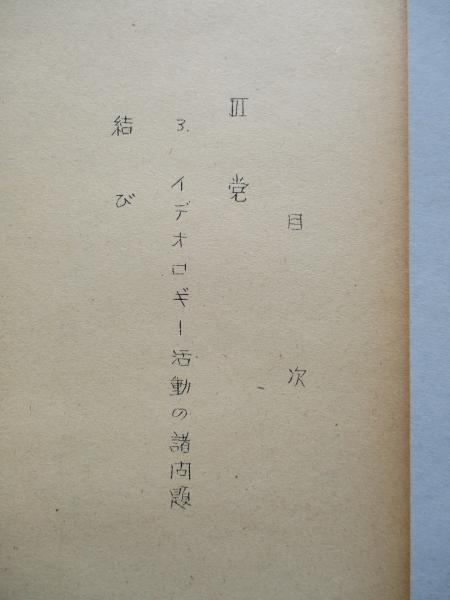 目次
III 党
3. イデオロギー活動の諸問題
結び